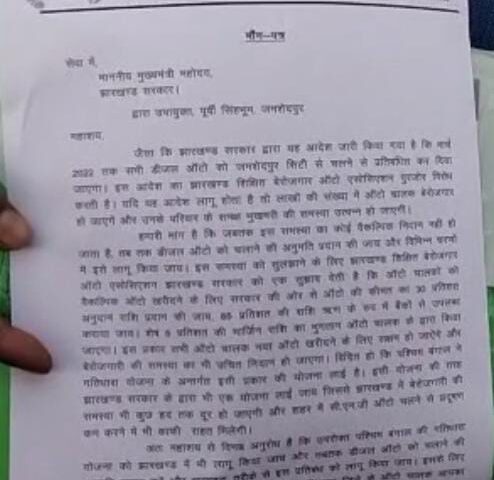 माँग–पत्र
सेवा में,
माननीय मुख्यमंत्री महोदय,
झारखण्ड सरकार।
द्वारा उपायुक्त, पूर्वी सिंहभूम, जमशेदपुर
महाशय,
जैसा कि झारखण्ड सरकार द्वारा यह आदेश जारी किया गया है कि मार्च
2022 तक सभी डीजल ऑटो को जमशेदपुर सिटी से चलने से प्रतिबंधित कर दिया
जाएगा। इस आदेश का झारखण्ड शिक्षित बेरोजगार ऑटो एसोसिएशन पुरजोर विरोध
करती है। यदि यह आदेश लागू होता है तो लाखों की संख्या में ऑटो चालक बेरोजगार
हो जाएंगे और उनके परिवार के समक्ष भुखमरी की समस्या उत्पन्न हो जाएगी।
हमारी मांग है कि जबतक इस समस्या का कोई वैकल्पिक निदान नहीं हो
जाता है, तब तक डीजल ऑटो को चलाने की अनुमति प्रदान की जाय और विभिन्न चरणों
में इसे लागू किया जाय। इस समस्या को सुलझाने के लिए झारखण्ड शिक्षित बेरोजगार
ऑटो एसोसिएशन झारखण्ड सरकार को एक सुझाव देती है कि ऑटो चालकों को
वैकल्पिक ऑटो खरीदने के लिए सरकार की ओर से ऑटो की कीमत का 30 प्रतिशत
अनुदान राशि प्रदान की जाय, 65 प्रतिशत की राशि ऋण के रूप में बैंकों से उपलब्ध
कराया जाय। शेष 5 प्रतिशत की मार्जिन राशि का भुगतान ऑटो चालक के द्वारा किया
जाएगा। इस प्रकार सभी ऑटो चालक नया ऑटो खरीदने के लिए सक्षम हो जाएंगे और
बेरोजगारी की समस्या का भी उचित निदान हो जाएगा। विदित हो कि पश्चिम बंगाल ने
गतिधारा योजना के अन्तर्गत इसी प्रकार की योजना लाई है। इसी योजना की तरह
झारखण्ड सरकार के द्वारा भी एक योजना लाई जाय जिससे झारखण्ड में बेरोजगारी की
समस्या भी कुछ हद तक दूर हो जाएगी और शहर में सी.एन.जी ऑटो चलने से प्रदूषण
कम करने में भी काफी राहत मिलेगी।
अतः महाशय से विनम्र अनुरोध है कि उपरोक्त पश्चिम बंगाल की गतिधारा
योजना को झारखण्ड में भी लागू किया जाय और तबतक डीजल ऑटो को चलाने की
से इस प्रतिबंध को लागू किया जाय। इसके लिए
ऑटो चालक आपका